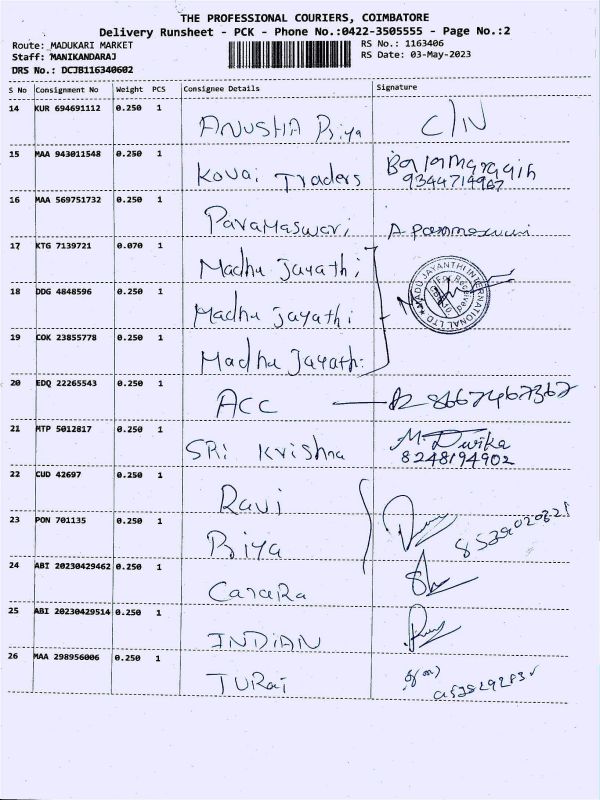 THE PROFESSIONAL COURIERS, COIMBATORE
Delivery Runsheet - PCK - Phone No.:0422-3505555 - Page No.:2
Route: MADUKARI MARKET
RS No.: 1163406
Staff: MANIKANDARAJ
RS Date: 03-May-2023
DRS No.: DCJB116340602
S No Consignment No Weight PCS Consignee Details Signature
14 KUR 694691112 0.250 1 ANUSHA Priya C/N
15 MAA 943011548 0.250 1 Kovai Traders
9344714967
16 MAA 569751732 0.250 1 Paramaswari A
17 KTG 7139721 0.070 1 Madhu Jayathi
MADU JAYANTHI INTERNATIONAL LTD
18 DDG 4848596 0.250 1 Madhu Jayathi
19 COK 23855778 0.250 1 Madhu Jayathi
20 EDQ 22265543 0.250 1 ACC 8667467367
21 MTP 5012817 0.250 1 SRi Krishna M
8248194902
22 CUD 42697 0.250 1 Ravi
23 PON 701135 0.250 1 Priya
24 ABI 20230429462 0.250 1 CanaRa
25 ABI 20230429514 0.250 1 INDIAN
26 MAA 298956006 0.250 1 TURai